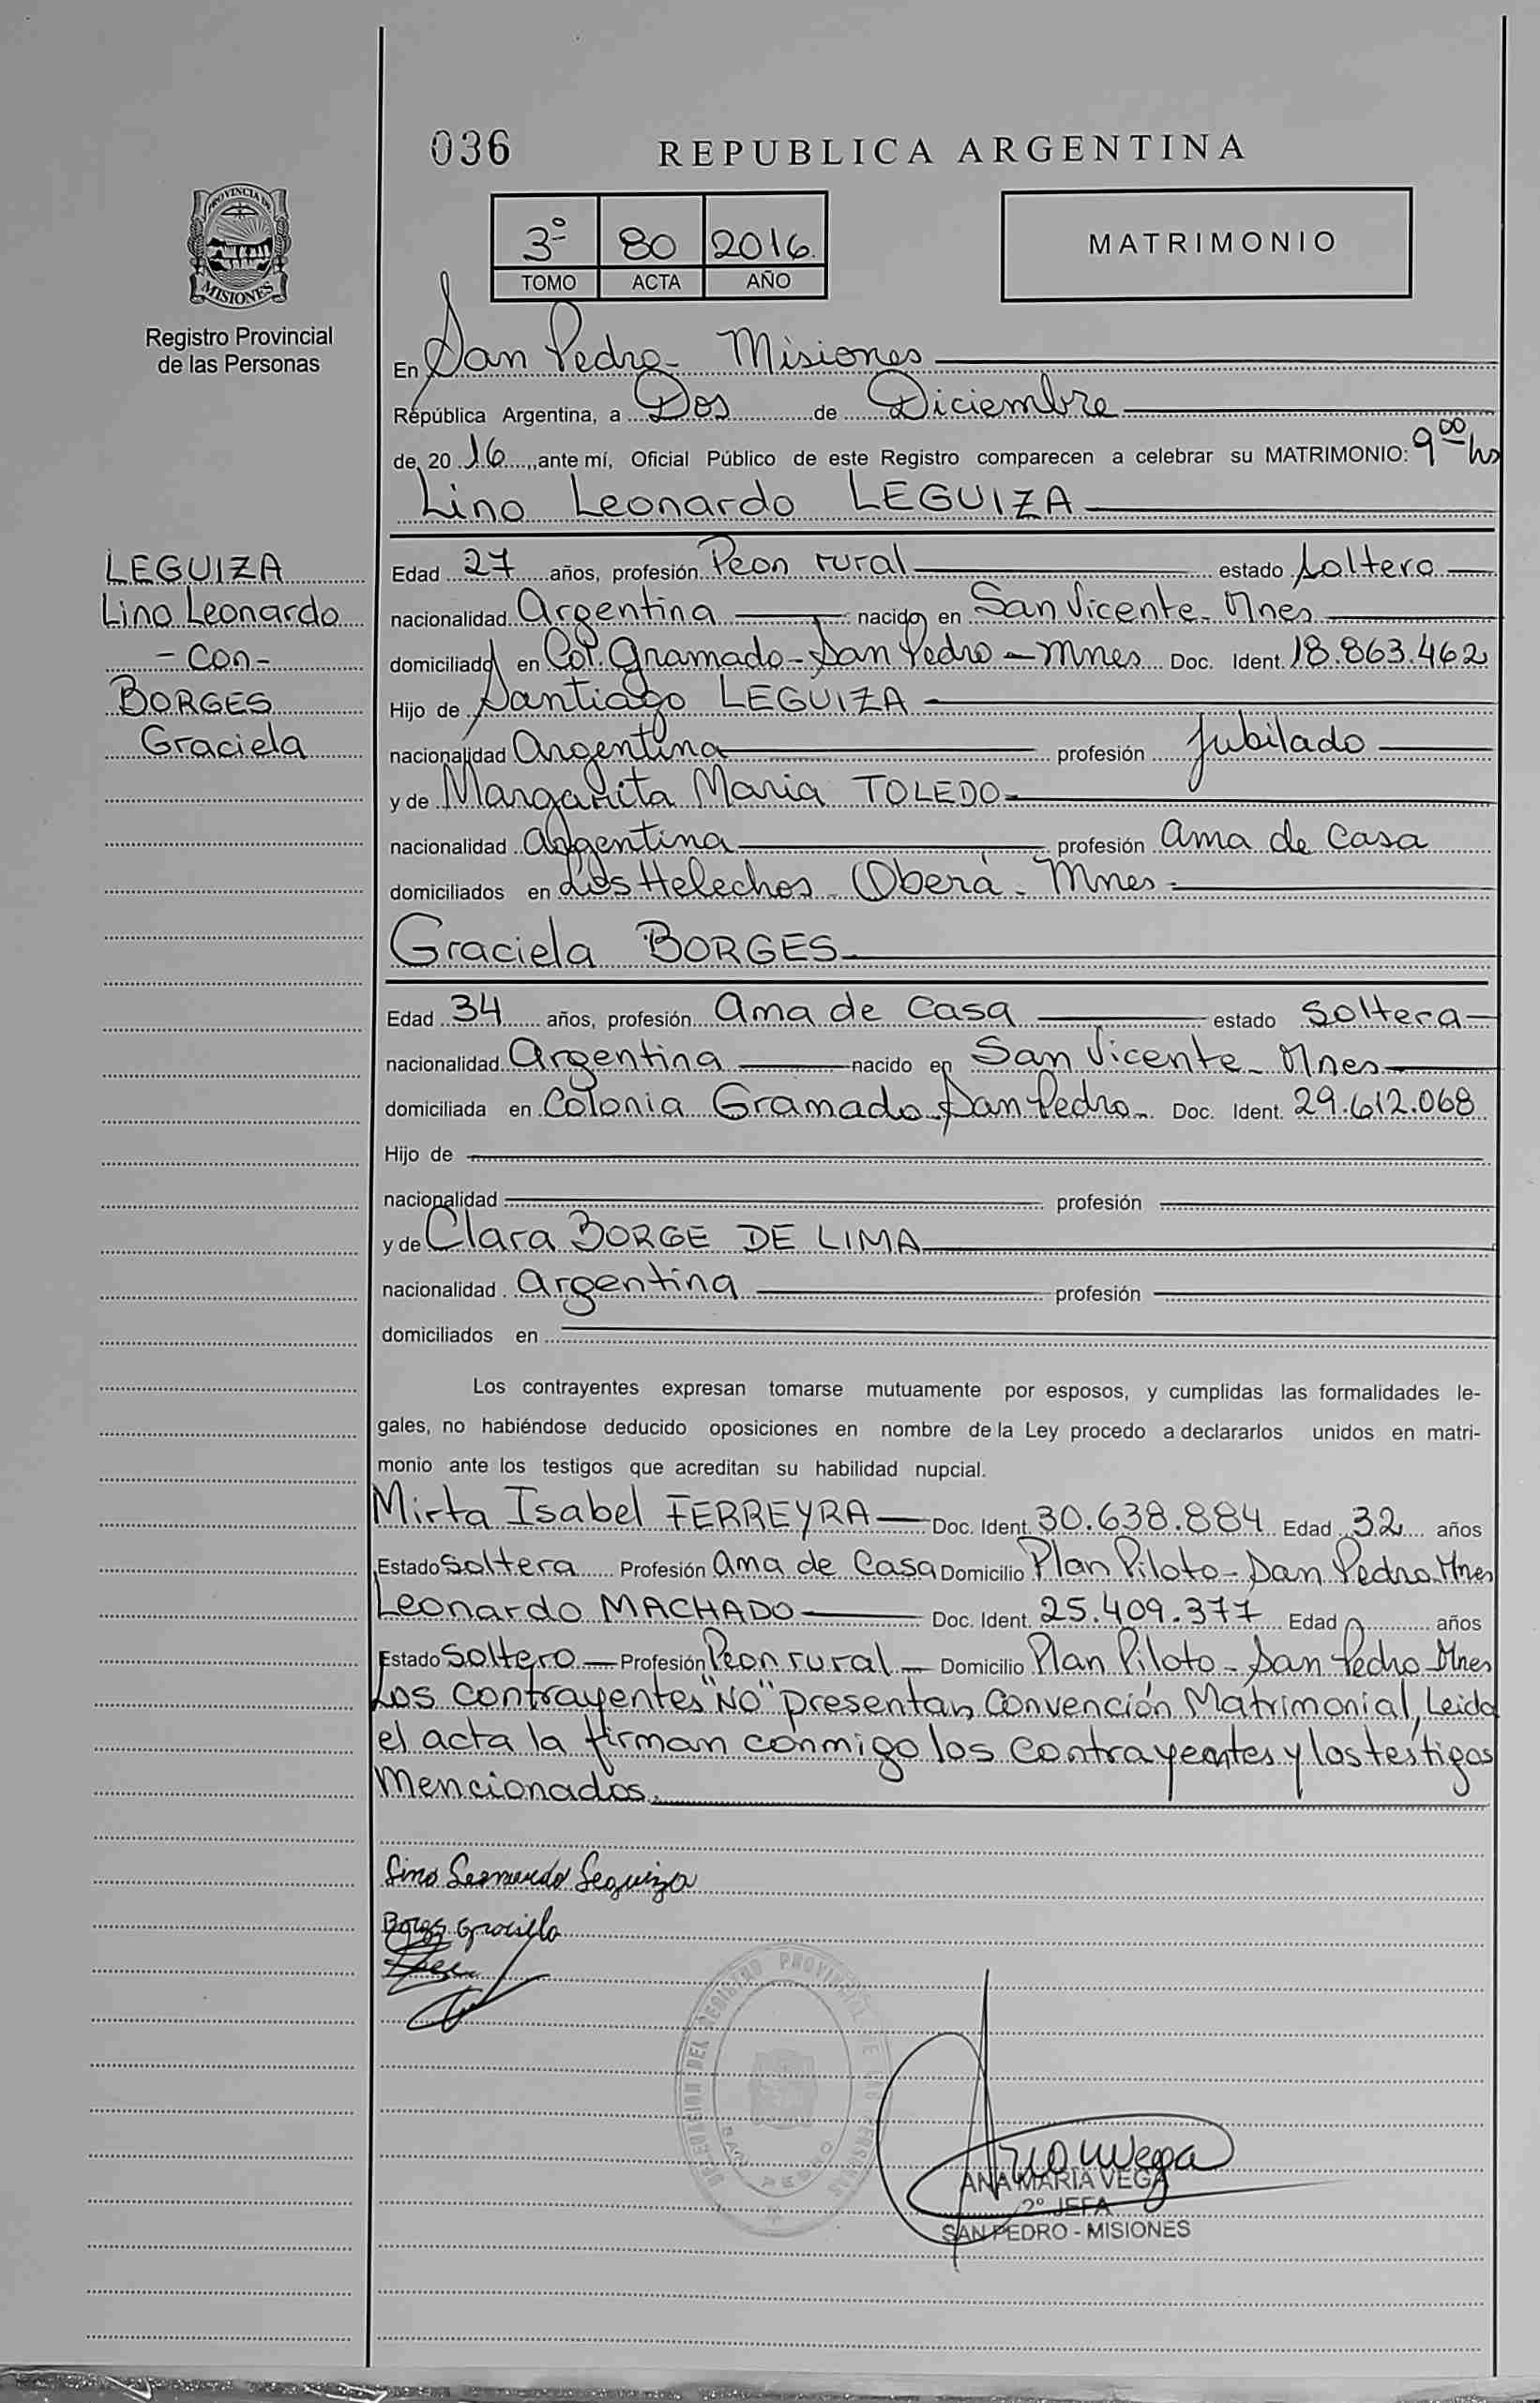 036 REPUBLICA ARGENTINA
PROVINCIA DE
MISIONES
Registro Provincial
de las Personas
3º 80 2016.
TOMO ACTA AÑO
MATRIMONIO
En San Pedro - Misiones
República Argentina, a Dos de Diciembre
de 20 16, ante mí, Oficial Público de este Registro comparecen a celebrar su MATRIMONIO: 9 00 hs
Lino Leonardo LEGUIZA
LEGUIZA
Lino Leonardo
- Con -
BORGES
Graciela
Edad 27 años, profesión Peon rural estado Soltero
nacionalidad Argentina nacido en San Vicente - Mnes
domiciliado en Col. Gramado - San Pedro - Mnes Doc. Ident. 18.863.462
Hijo de Santiago LEGUIZA
nacionalidad Argentina profesión Jubilado
y de Margarita Maria TOLEDO
nacionalidad Argentina profesión Ama de Casa
domiciliados en Los Helechos - Oberá - Mnes -
Graciela BORGES
Edad 34 años, profesión Ama de Casa estado Soltera
nacionalidad Argentina nacido en San Vicente - Mnes
domiciliada en Colonia Gramado San Pedro - Doc. Ident. 29.612.068
Hijo de
nacionalidad profesión
y de Clara BORGE DE LIMA
nacionalidad Argentina profesión
domiciliados en
Los contrayentes expresan tomarse mutuamente por esposos, y cumplidas las formalidades le-
gales, no habiéndose deducido oposiciones en nombre de la Ley procedo a declararlos unidos en matri-
monio ante los testigos que acreditan su habilidad nupcial.
Mirta Isabel FERREYRA Doc. Ident. 30.638.884 Edad 32 años
Estado Soltera Profesión Ama de Casa Domicilio Plan Piloto - San Pedro - Mnes
Leonardo MACHADO Doc. Ident. 25.409.377 Edad años
Estado Soltero Profesión Peon rural Domicilio Plan Piloto - San Pedro - Mnes
Los contrayentes "NO" presentan Convención Matrimonial, Leida
el acta la firman conmigo los contrayentes y los testigos
Mencionados.
Lino Leonardo Leguiza
Borges Graciela
DELEGACION DEL REGISTRO PROVINCIAL DE LAS PERSONAS
SAN PEDRO
Ana M Vega
ANA MARIA VEGA
2º JEFA
SAN PEDRO - MISIONES